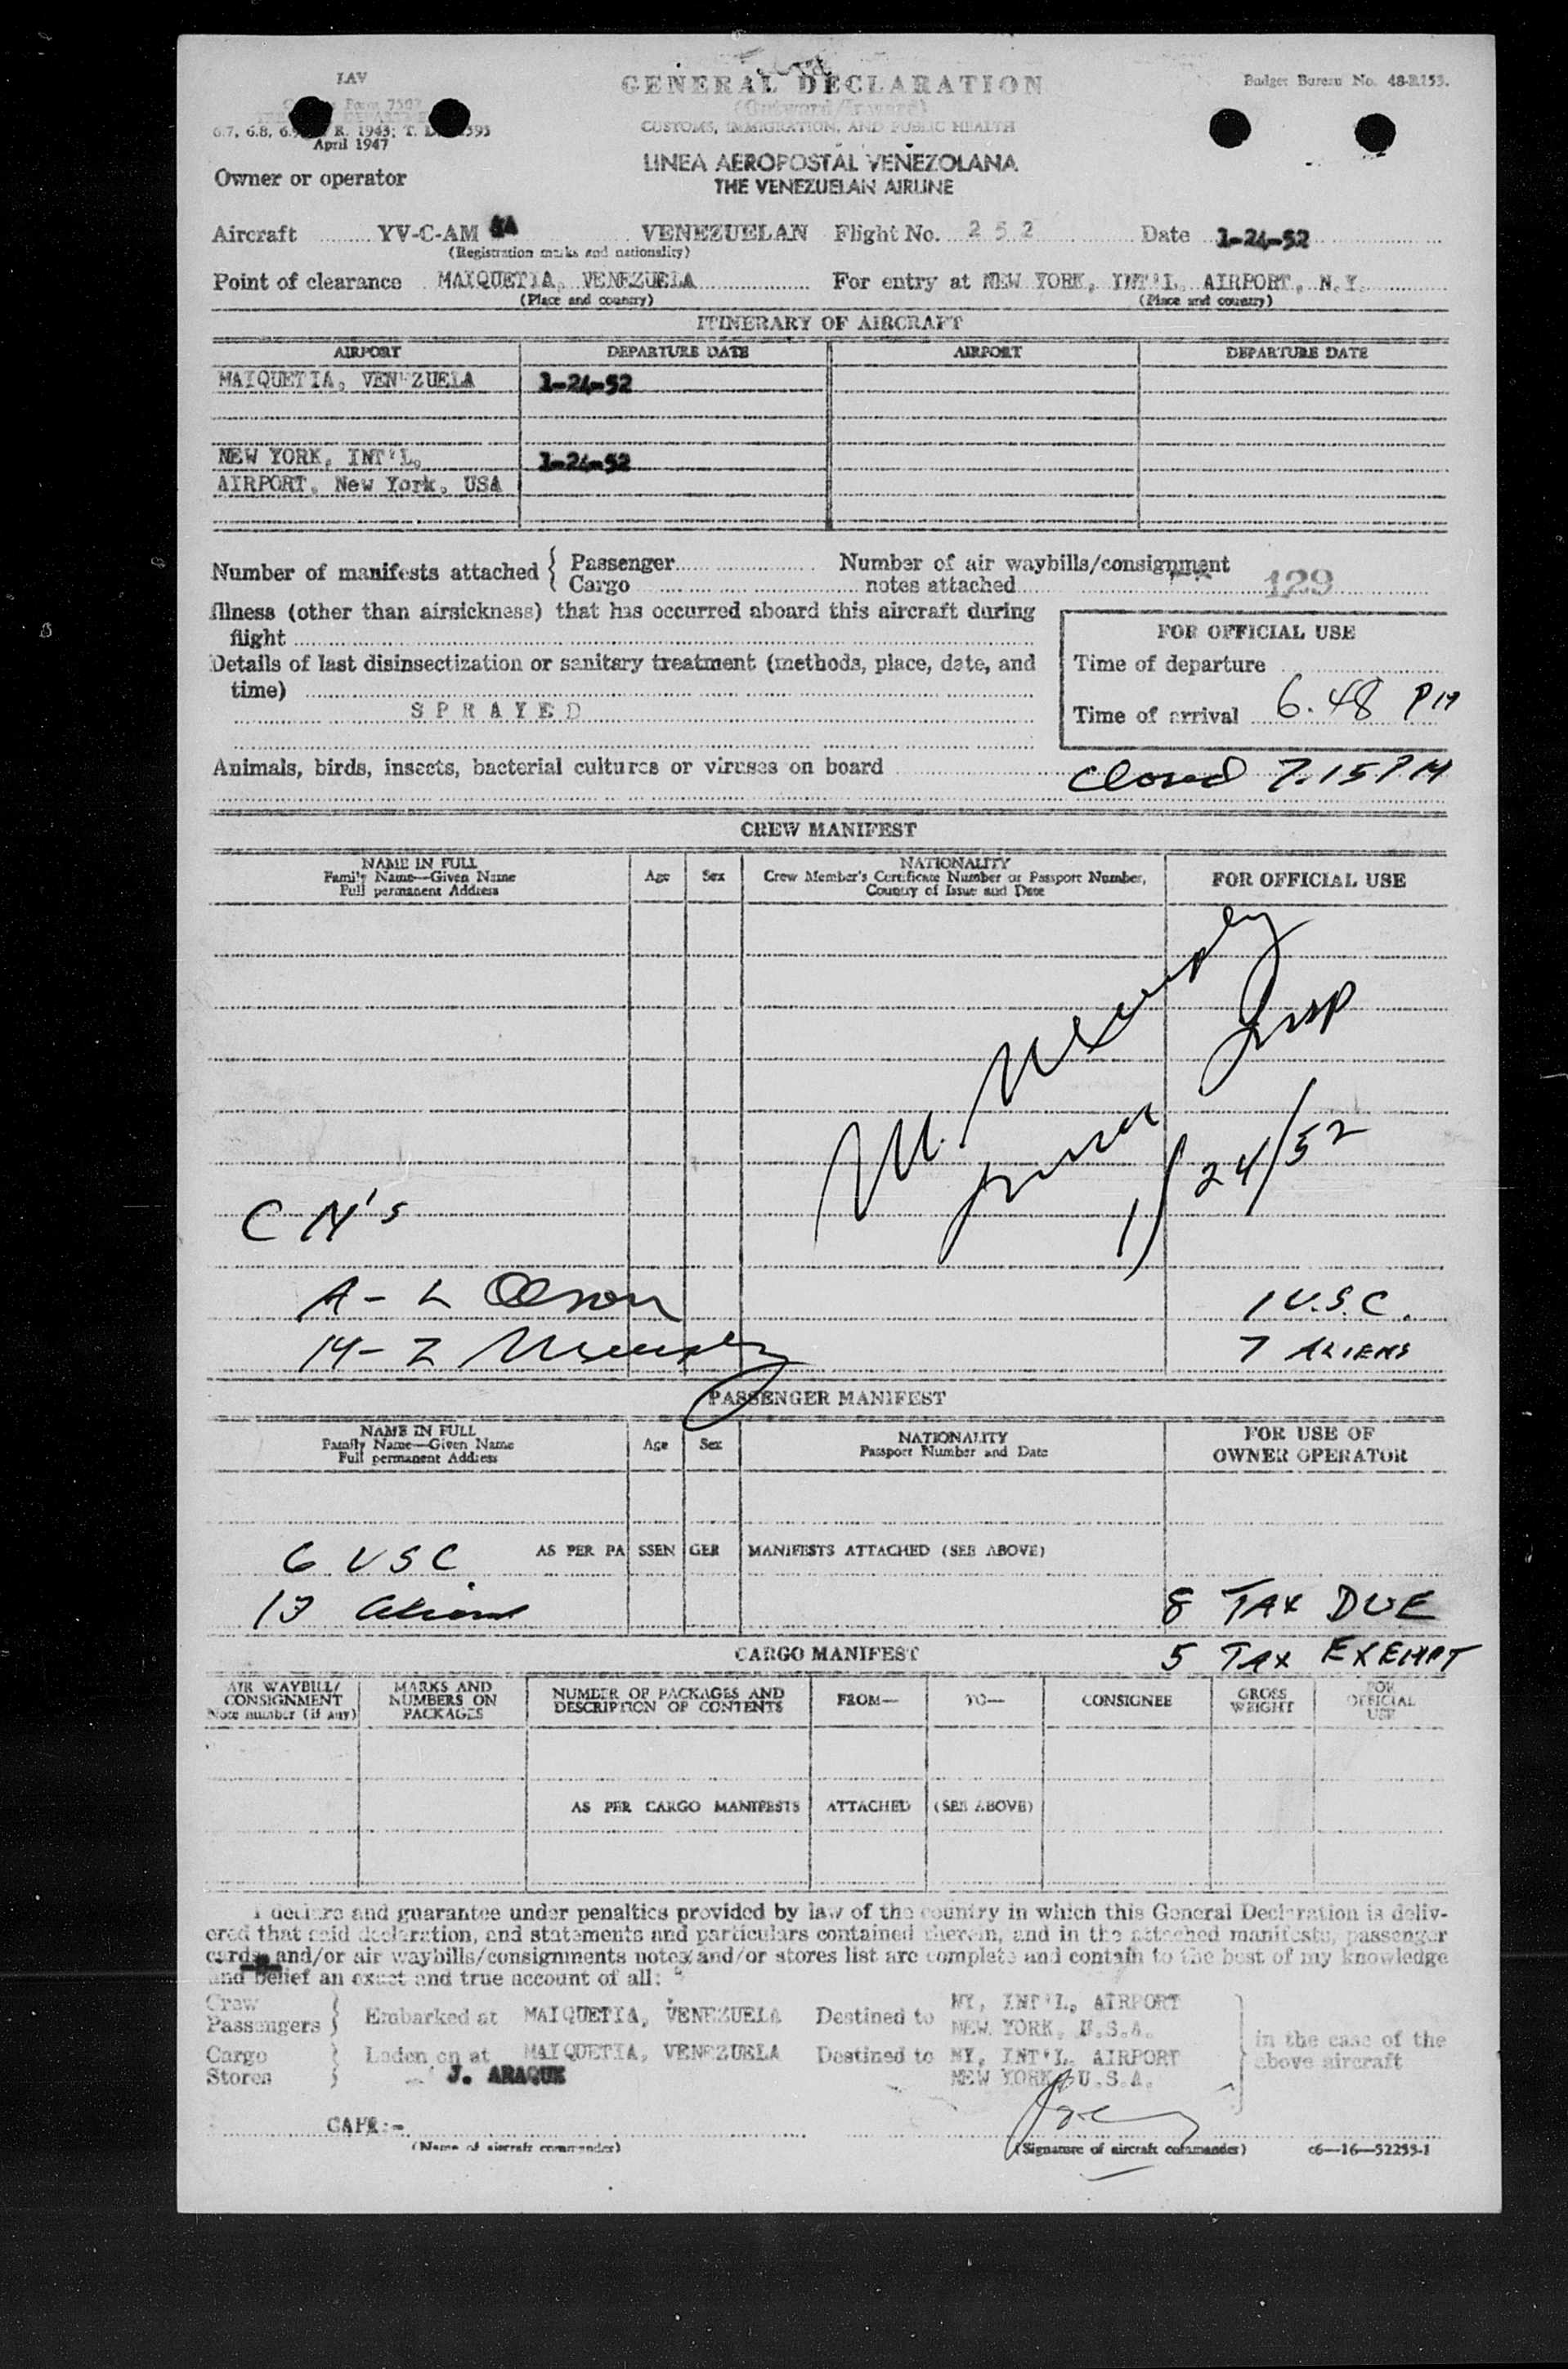 LAV
GENERAL DECLARATION
Budget Bureau No. 48-R153.
Form 7507
(Outward/Inward)
6.7, 6.8, R. 1943; T.
CUSTOMS, IMMIGRATION, AND PUBLIC HEALTH
April 1947
LINEA AEROPOSTAL VENEZOLANA
THE VENEZUELAN AIRLINE
Owner or operator
Aircraft YV-C-AM VENEZUELAN Flight No. 252 Date 1-24-52
(Registration marks and nationality)
Point of clearance MAIQUETIA, VENEZUELA For entry at NEW YORK, INT'L. AIRPORT, N.Y.
(Place and country) (Place and country)
ITINERARY OF AIRCRAFT
AIRPORT DEPARTURE DATE AIRPORT DEPARTURE DATE
MAIQUETIA, VENEZUELA 1-24-52
NEW YORK, INT'L, 1-24-52
AIRPORT, New York, USA
Number of manifests attached { Passenger Number of air waybills/consignment
Cargo notes attached 129
Illness (other than airsickness) that has occurred aboard this aircraft during
flight
FOR OFFICIAL USE
Details of last disinsectization or sanitary treatment (methods, place, date, and
time)
Time of departure
SPRAYED
Time of arrival 6.48 PM
Animals, birds, insects, bacterial cultures or viruses on board
Closed 7.15 PM
CREW MANIFEST
NAME IN FULL
Family Name—Given Name
Full permanent Address
Age Sex
NATIONALITY
Crew Member's Certificate Number or Passport Number,
Country of Issue and Date
FOR OFFICIAL USE
M. Murphy
Insp
1/24/52
C M's
A - L Olson 1 U.S.C.
M - Z Murphy 7 ALIENS
PASSENGER MANIFEST
NAME IN FULL
Family Name—Given Name
Full permanent Address
Age Sex
NATIONALITY
Passport Number and Date
FOR USE OF
OWNER OPERATOR
6 USC AS PER PASSENGER MANIFESTS ATTACHED (SEE ABOVE)
13 Aliens 8 TAX DUE
5 TAX EXEMPT
CARGO MANIFEST
AIR WAYBILL/
CONSIGNMENT
Note number (if any)
MARKS AND
NUMBERS ON
PACKAGES
NUMBER OF PACKAGES AND
DESCRIPTION OF CONTENTS
FROM— TO— CONSIGNEE
GROSS
WEIGHT
FOR
OFFICIAL
USE
AS PER CARGO MANIFESTS ATTACHED (SEE ABOVE)
I declare and guarantee under penalties provided by law of the country in which this General Declaration is deliv-
ered that said declaration, and statements and particulars contained therein, and in the attached manifests, passenger
cards and/or air waybills/consignments notes and/or stores list are complete and contain to the best of my knowledge
and belief an exact and true account of all:
Crew
Passengers } Embarked at MAIQUETIA, VENEZUELA Destined to NY, INT'L, AIRPORT
NEW YORK, U.S.A.
Cargo
Stores } Laden on at MAIQUETIA, VENEZUELA Destined to NY, INT'L. AIRPORT
NEW YORK, U.S.A.
in the case of the
above aircraft
J. ARAQUE
CAPT:-
(Name of aircraft commander) (Signature of aircraft commander) c6—16—52253-1